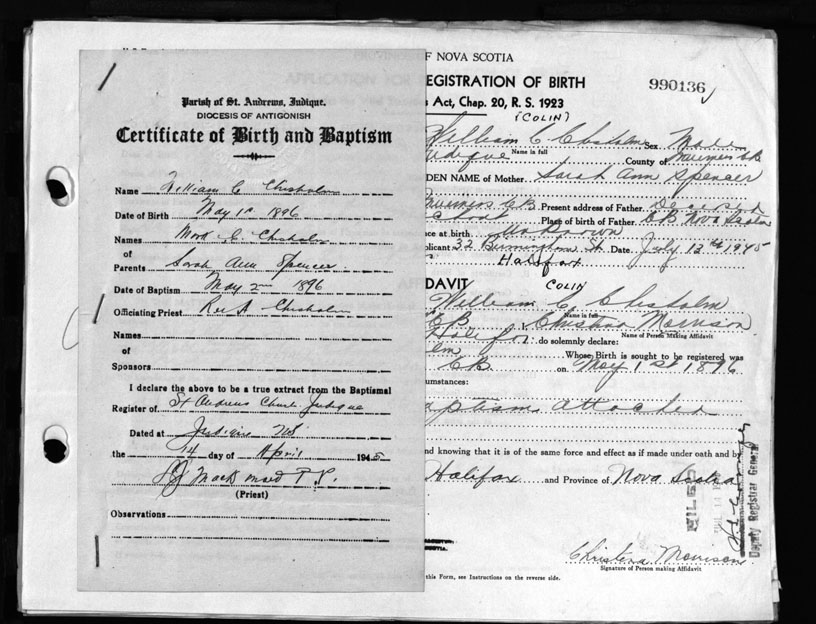 Parish of St. Andrews, Judique.
DIOCESIS OF ANTIGONISH
Certificate of Birth and Baptism
Name William C Chisholm
Date of Birth May 1st 1896
Names C Chisholm
of
Parents Sarah Ann Spencer
Date of Baptism May 2nd 1896
Officiating Priest Rev A Chisholm
Names
of
Sponsors
I declare the above to be a true extract from the Baptismal
Register of St Andrews Church Judique
Dated at Judique NS
the 14 day of April 1945
P. P.
(Priest)
Observations
OF NOVA SCOTIA
REGISTRATION OF BIRTH
990136
s Act, Chap. 20, R. S. 1923
(COLIN)
William C Chisholm Sex Male
Name in full
Judique County of Inverness CB
DEN NAME of Mother Sarah Ann Spencer
Inverness CB Present address of Father Deceased
Place of birth of Father CB Nova Scotia
nce at birth Unknown
plicant 32 Birmingham St Date July 12th 1945
Halifax
DAVIT
COLIN
William C. Chisholm
Name in full
CB Christena Morrison
Name of Person Making Affidavit
Halifax do solemnly declare:
Whose Birth is sought to be registered was
CB on May 1st 1896
cumstances:
aptism attached
and knowing that it is of the same force and effect as if made under oath and by
Halifax and Province of Nova Scotia
FILED
Deputy Registrar General
Christena Morrison
Signature of Person making Affidavit
this Form, see Instructions on the reverse side.